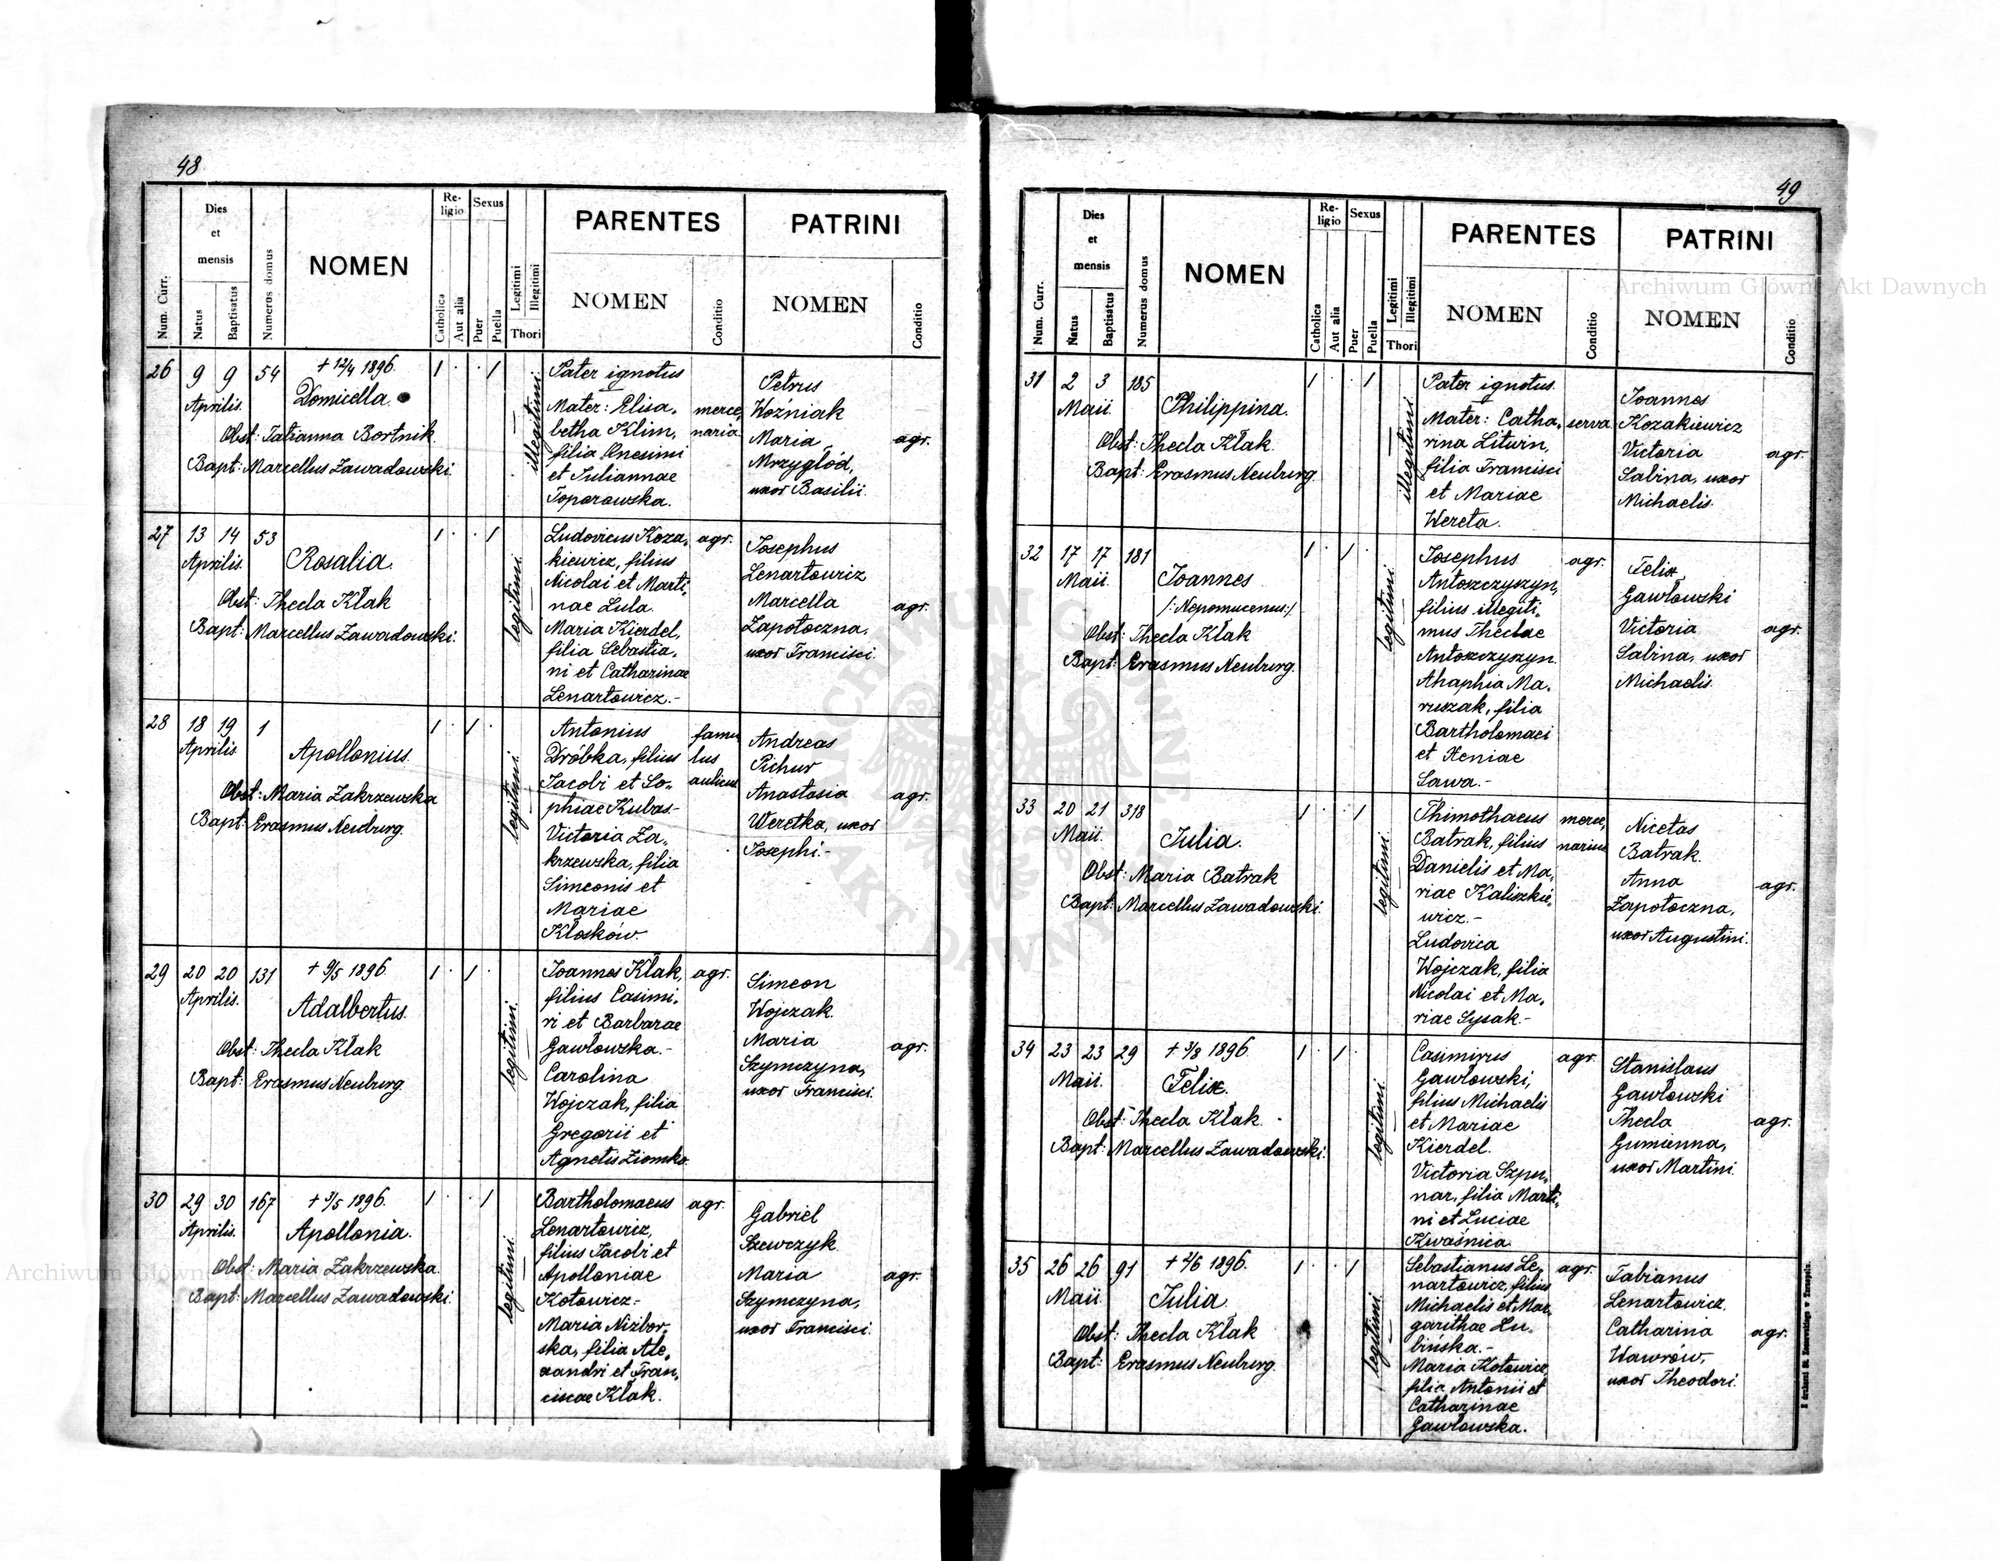 48
Num. Curr.
Dies et mensis
Natus
Baptisatus
Numerus domus
NOMEN
Religio
Catholica
Aut alia
Sexus
Puer
Puella
Legitimi
Illegitimi
Thori
PARENTES
NOMEN
Conditio
PATRINI
NOMEN
Conditio
26
9 9
Aprilis.
54
+ 12/4 1896.
Domicella.
Obst: Tatianna Bortnik.
Bapt: Marcellus Zawadowski.
1 . . 1
illegitimi.
Pater ignotus
Mater: Elisa-
betha Klim,
filia Onesimi
et Juliannae
Toporowska.
merce-
naria
Petrus
Woźniak
Maria
Mrzygłód,
uxor Basilii.
agr.
27
13 14
Aprilis.
53
Rosalia.
Obst: Thecla Kłak
Bapt: Marcellus Zawadowski.
1 . . 1
legitimi.
Ludovicus Koza-
kiewicz, filius
Nicolai et Marti-
nae Lula.
Maria Kierdel,
filia Sebastia-
ni et Catharinae
Lenartowicz.-
agr.
Josephus
Lenartowicz
Marcella
Zapotoczna,
uxor Francisci.
agr.
28
18 19
Aprilis
1
Apollonius.
Obst: Maria Zakrzewska
Bapt: Erasmus Neuburg.
1 . 1 .
legitimi.
Antonius
Dróbka, filius
Jacobi et So-
phiae Kubas-
Victoria Za-
krzewska, filia
Simeonis et
Mariae
Kłosków.
famu-
lus
aulicus
Andreas
Pichur
Anastasia
Weretka, uxor
Josephi.-
agr.
29
20 20
Aprilis.
131
+ 9/5 1896.
Adalbertus.
Obst: Thecla Kłak
Bapt: Erasmus Neuburg.
1 . 1 .
legitimi.
Joannes Kłak,
filius Casimi-
ri et Barbarae
Gawłowska.-
Carolina
Wojczak, filia
Gregorii et
Agnetis Ziomko.
agr.
Simeon
Wojczak.
Maria
Szymczyna,
uxor Francisci.
agr.
30
29 30
Aprilis.
167
+ 9/5 1896.
Apollonia.
Obst: Maria Zakrzewska.
Bapt: Marcellus Zawadowski.
1 . . 1
legitimi.
Bartholomaeus
Lenartowicz,
filius Jacobi et
Apolloniae
Kotowicz.-
Maria Nizbor-
ska, filia Ale-
xandri et Fran-
ciscae Kłak.
agr.
Gabriel
Szewczyk.
Maria
Szymczyna,
uxor Francisci.
agr.
49
Num. Curr.
Dies et mensis
Natus
Baptisatus
Numerus domus
NOMEN
Religio
Catholica
Aut alia
Sexus
Puer
Puella
Legitimi
Illegitimi
Thori
PARENTES
NOMEN
Conditio
PATRINI
NOMEN
Conditio
31
2 3
Maii.
185
Philippina.
Obst: Thecla Kłak.
Bapt: Erasmus Neuburg.
1 . . 1
illegitimi.
Pater ignotus.
Mater: Catha-
rina Litwin,
filia Francisci
et Mariae
Wereta.
serva
Joannes
Kozakiewicz
Victoria
Sabina, uxor
Michaelis.
agr.
32
17 17
Maii.
181
Joannes
/:Nepomucenus:/
Obst: Thecla Kłak
Bapt: Erasmus Neuburg.
1 . 1
legitimi.
Josephus
Antoszczyszyn,
filius illegiti-
mus Theclae
Antoszczyszyn.
Ahaphia Ma-
ruszak, filia
Bartholomaei
et Xeniae
Sawa.-
agr.
Felix
Gawłowski
Victoria
Sabina, uxor
Michaelis.
agr.
33
20 21
Maii.
318
Julia.
Obst: Maria Batrak
Bapt: Marcellus Zawadowski.
1 . . 1
legitimi.
Thimothaeus
Batrak, filius
Danielis et Ma-
riae Kaliszkie-
wicz.-
Ludovica
Wojczak, filia
Nicolai et Ma-
riae Sysak.-
merce-
narius
Nicetas
Batrak.
Anna
Zapotoczna,
uxor Augustini.
agr.
34
23 23
Maii.
29
+ 3/8 1896.
Felix.
Obst: Thecla Kłak.
Bapt: Marcellus Zawadowski.
1 . 1 .
legitimi.
Casimirus
Gawłowski,
filius Michaelis
et Mariae
Kierdel.
Victoria Szpu-
nar, filia Marti-
ni et Luciae
Kwaśnica.
agr.
Stanislaus
Gawłowski
Thecla
Gumienna,
uxor Martini.
agr.
35
26 26
Maii
91
+ 2/6 1896.
Julia.
Obst: Thecla Kłak
Bapt: Erasmus Neuburg.
1 . . 1
legitimi.
Sebastianus Le-
nartowicz, filius
Michaelis et Mar-
garithae Lu-
bińska.-
Maria Kotowicz,
filia Antonii et
Catharinae
Gawłowska.
agr.
Fabianus
Lenartowicz.
Catharina
Wawrów,
uxor Theodori.
agr.
Archiwum Główne Akt Dawnych